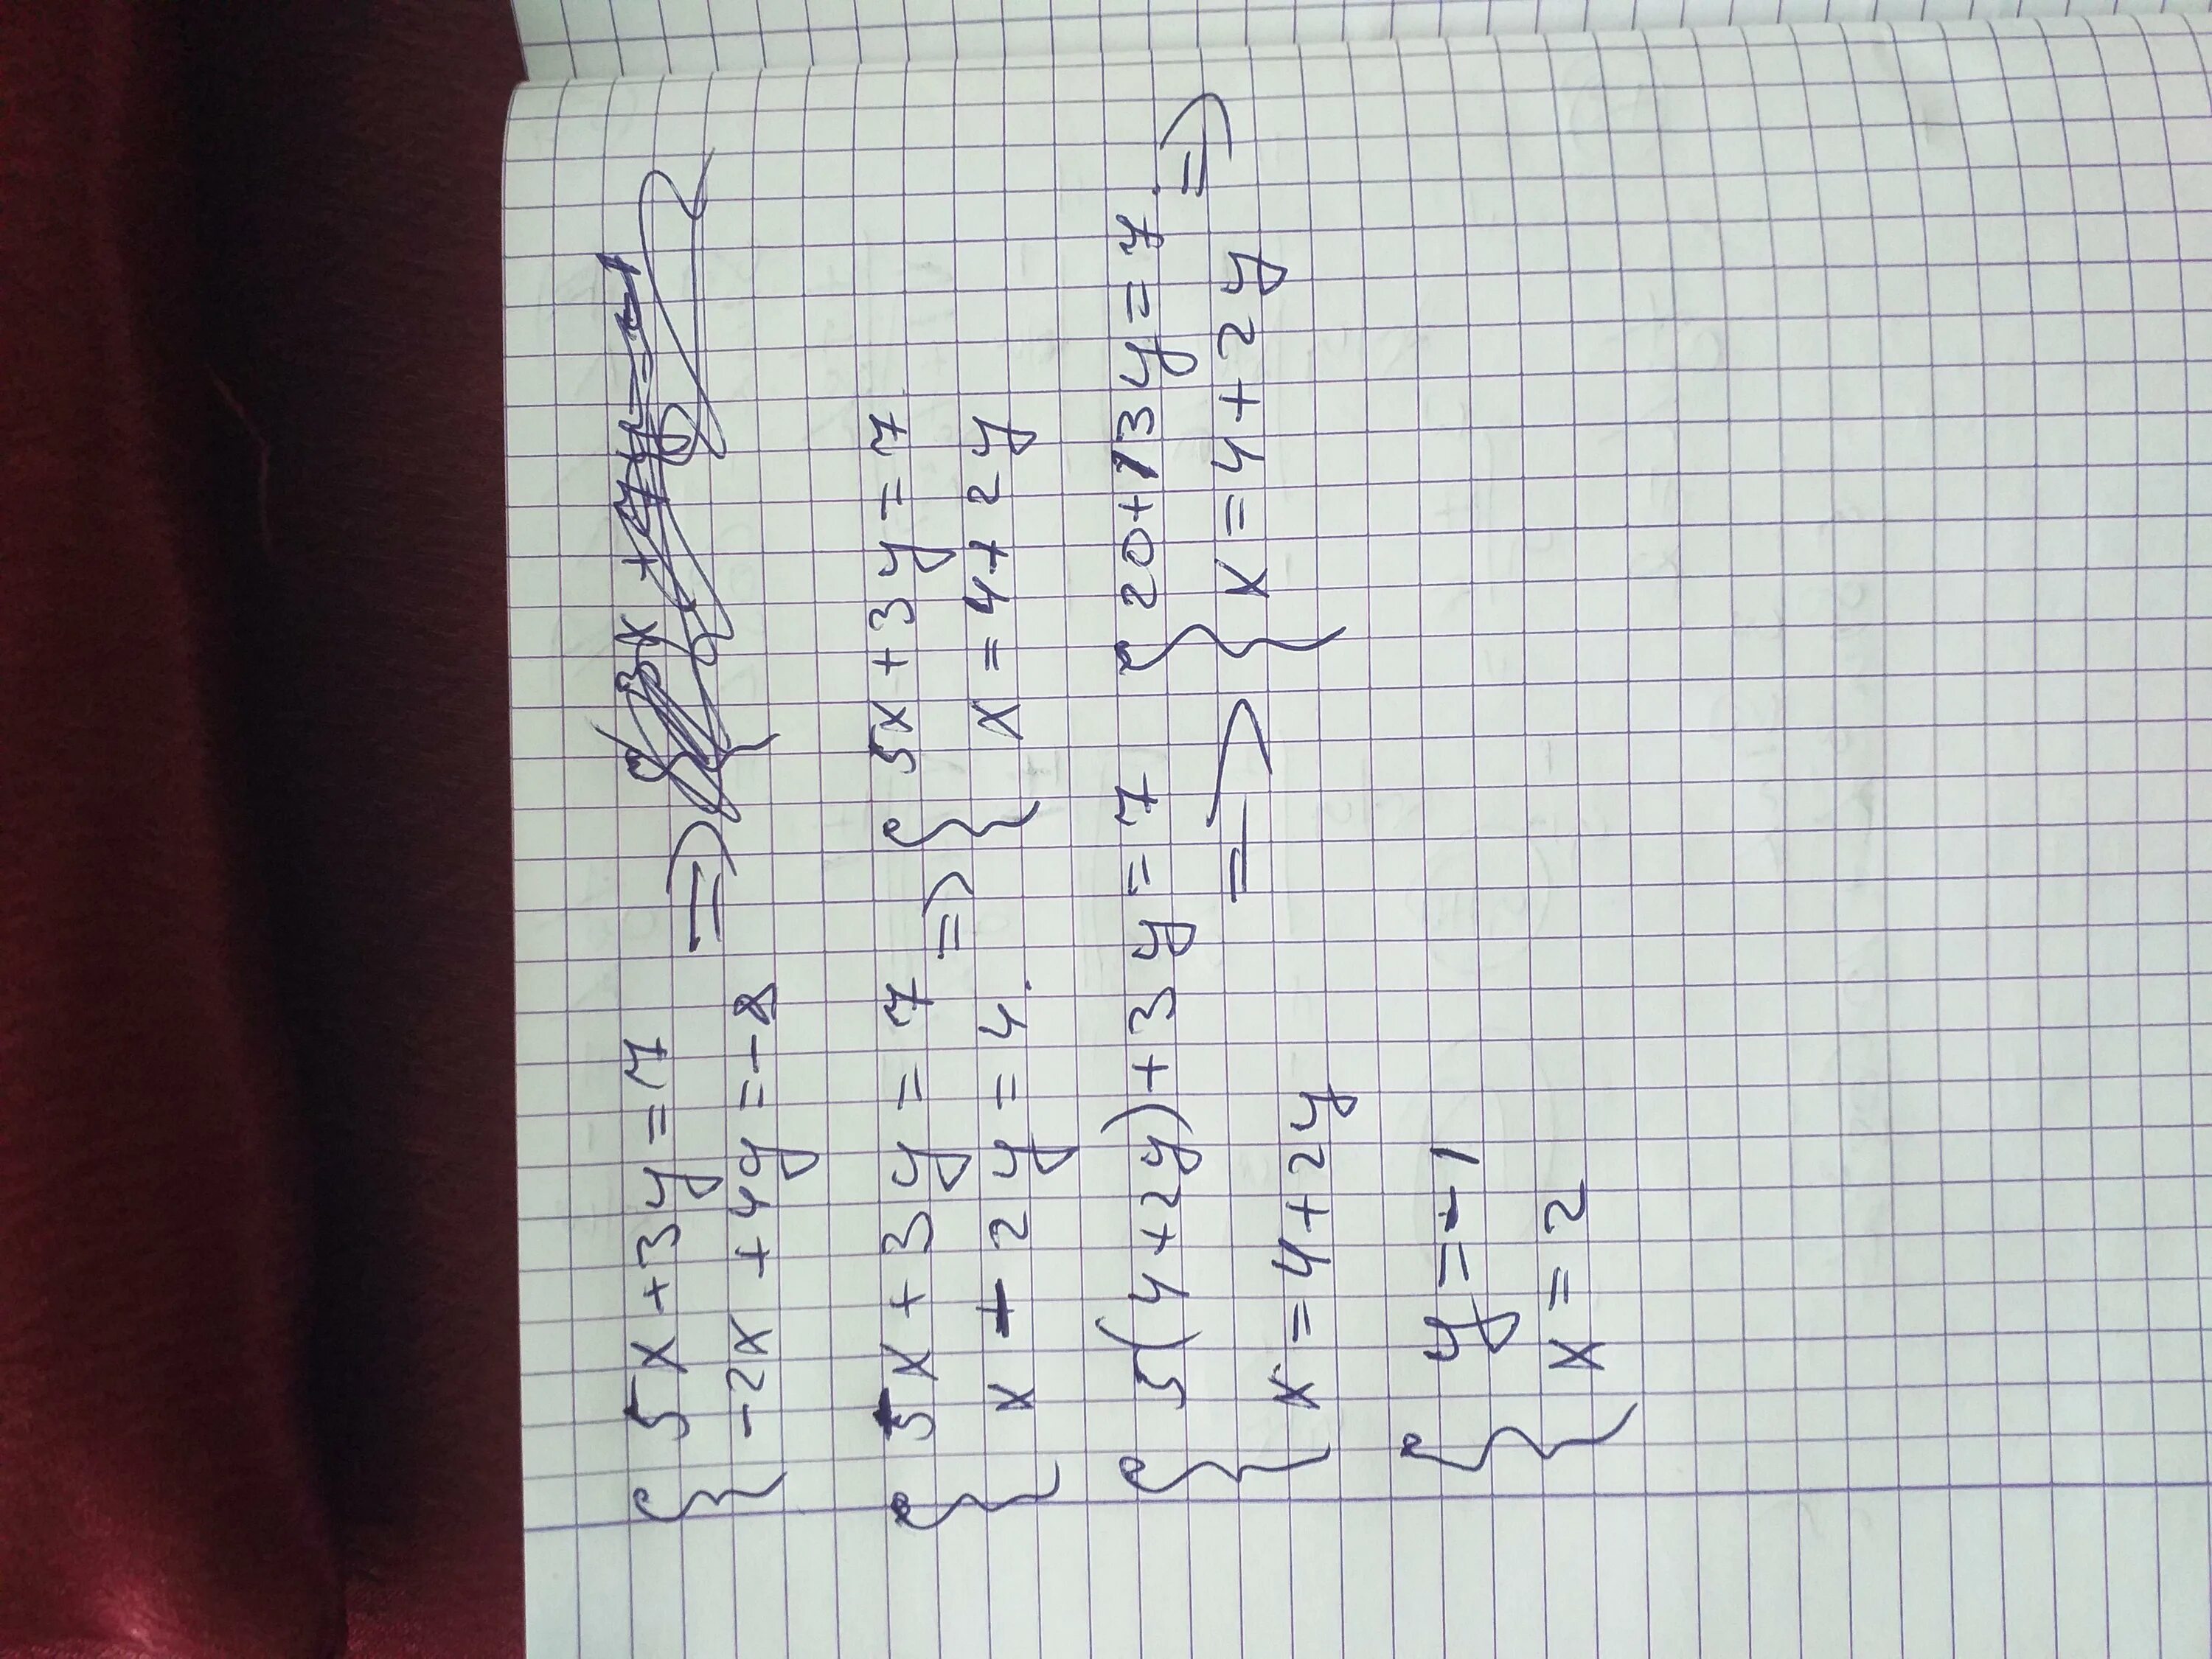 { 5x + 3y = 7
-2x + 4y = -8 =>
{ 5x + 3y = 7
x - 2y = 4. => { 5x + 3y = 7
x = 4 + 2y
{ 5(4+2y) + 3y = 7
x = 4 + 2y => { 20 + 13y = 7
x = 4 + 2y =>
{ y = -1
x = 2